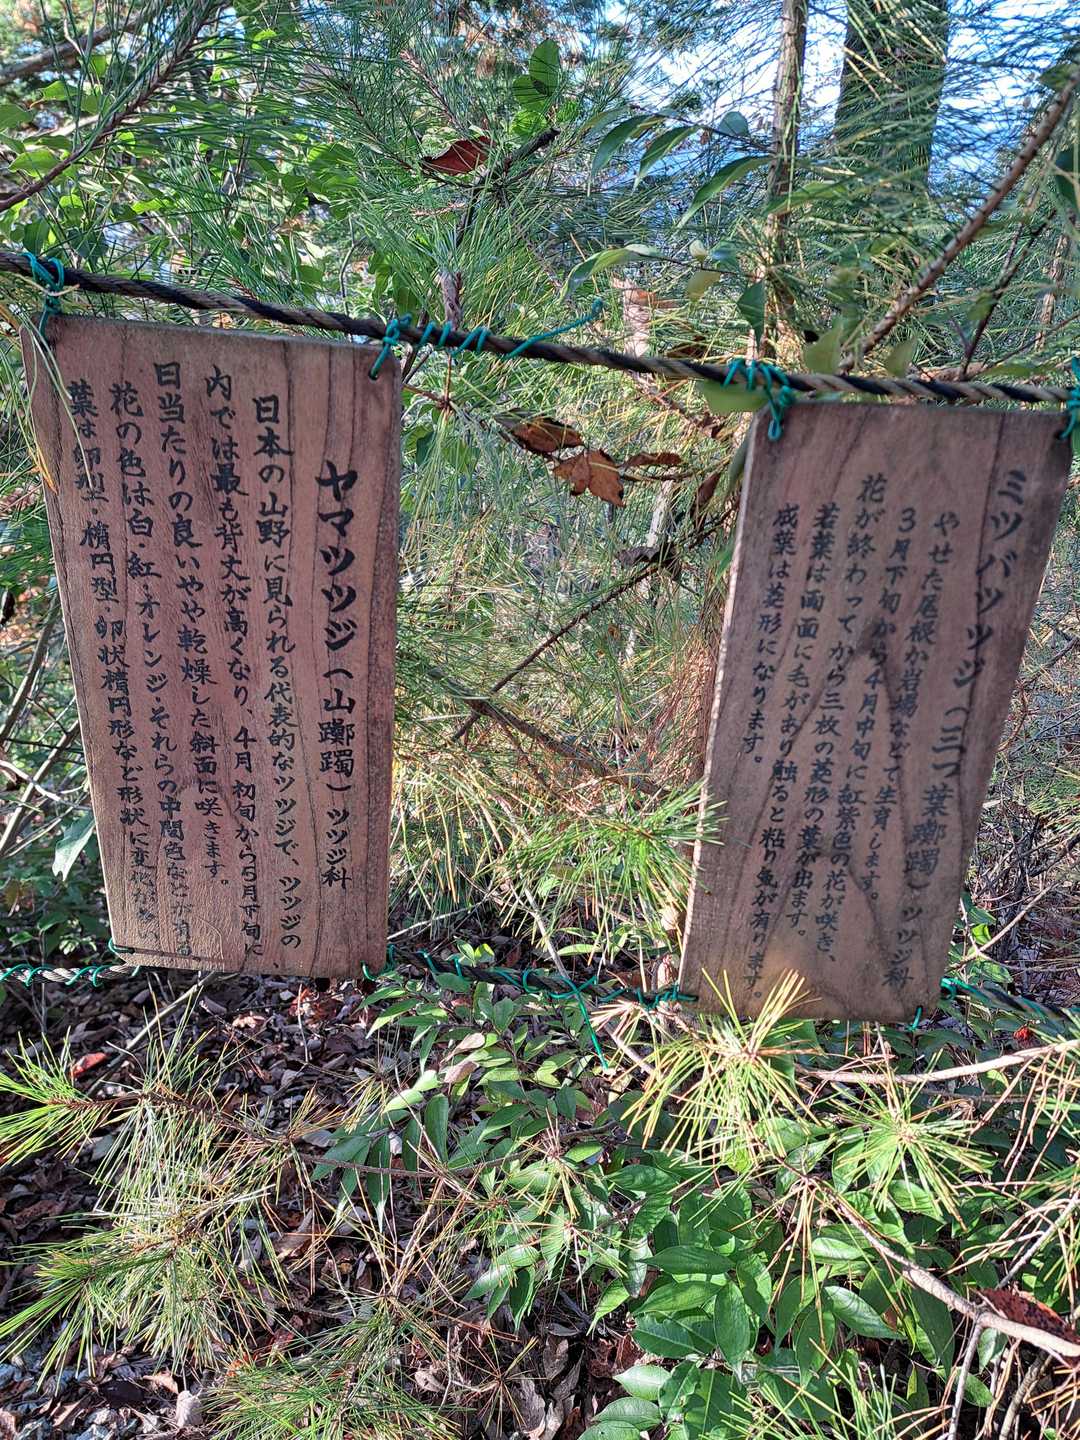 ミツバツツジ（三つ葉躑躅）ツツジ科
やせた尾根か岩場などで生育します。
3月下旬から4月中旬に紅紫色の花が咲き、
花が終わってから三枚の菱形の葉が出ます。
若葉は両面に毛があり触ると粘り気が有ります。
成葉は菱形になります。
ヤマツツジ（山躑躅）ツツジ科
日本の山野に見られる代表的なツツジで、ツツジの
内では最も背丈が高くなり、4月初旬から5月下旬に、
日当たりの良いやや乾燥した斜面に咲きます。
花の色は白・紅・オレンジ・それらの中間色などが有る
葉は卵型・楕円型・卵状楕円形など形状に変化が